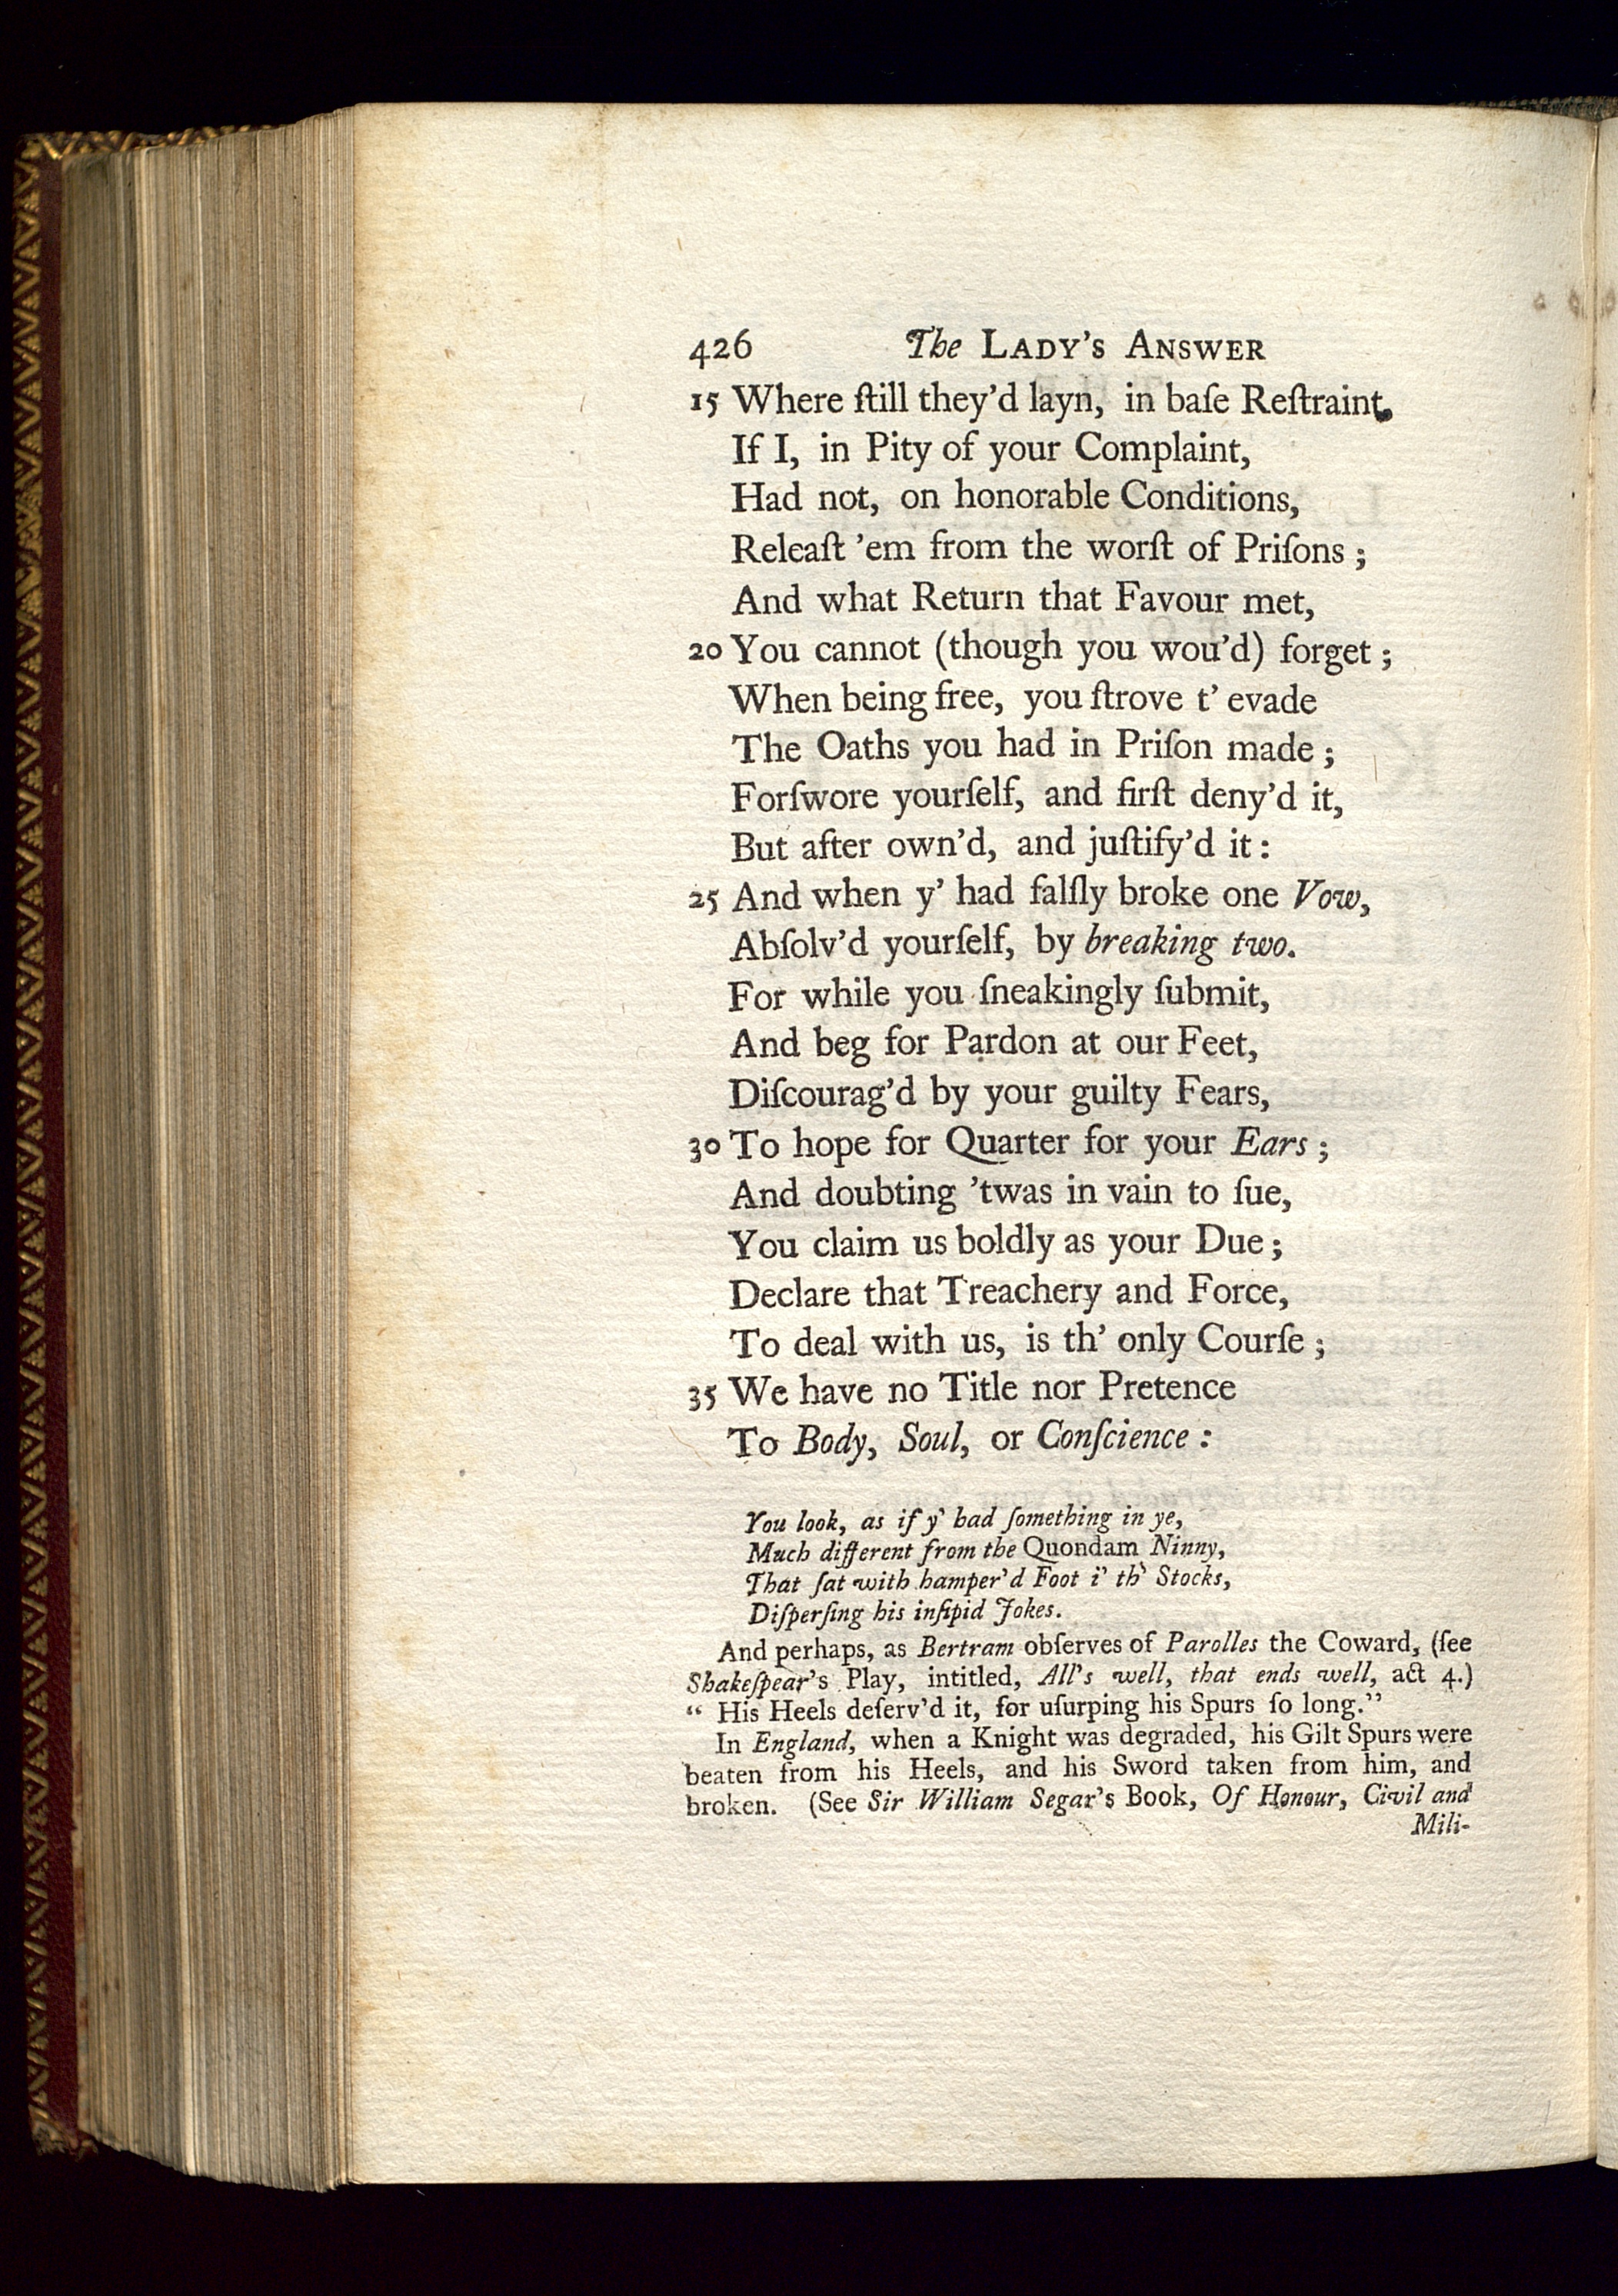 426 The LADY'S ANSWER
15 Where ſtill they'd layn, in baſe Reſtraint,
If I, in Pity of your Complaint,
Had not, on honorable Conditions,
Releaſt 'em from the worſt of Priſons;
And what Return that Favour met,
20 You cannot (though you wou'd) forget;
When being free, you ſtrove t' evade
The Oaths you had in Priſon made;
Forſwore yourſelf, and firſt deny'd it,
But after own'd, and juſtify'd it:
25 And when y' had falſly broke one Vow,
Abſolv'd yourſelf, by breaking two.
For while you ſneakingly ſubmit,
And beg for Pardon at our Feet,
Diſcourag'd by your guilty Fears,
30 To hope for Quarter for your Ears;
And doubting 'twas in vain to ſue,
You claim us boldly as your Due;
Declare that Treachery and Force,
To deal with us, is th' only Courſe;
35 We have no Title nor Pretence
To Body, Soul, or Conſcience:
You look, as if y' had ſomething in ye,
Much different from the Quondam Ninny,
That ſat with hamper'd Foot i' th' Stocks,
Diſperſing his inſipid Jokes.
And perhaps, as Bertram obſerves of Parolles the Coward, (ſee
Shakeſpear's Play, intitled, All's well, that ends well, act 4.)
“ His Heels deſerv'd it, for uſurping his Spurs ſo long.”
In England, when a Knight was degraded, his Gilt Spurs were
beaten from his Heels, and his Sword taken from him, and
broken. (See Sir William Segar's Book, Of Honour, Civil and
Mili-